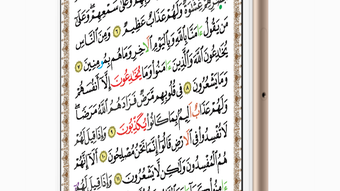 سَمْعِهِمْ وَعَلَىٰ
غِشَٰوَةٌ وَلَهُمْ عَذَابٌ عَظِيمٌ ٧ وَمِنَ ٱلنَّاسِ
مَن يَقُولُ ءَامَنَّا بِٱللَّهِ وَبِٱلْيَوْمِ ٱلْءَاخِرِ وَمَا هُم بِمُؤْمِنِينَ ٨
يُخَٰدِعُونَ ٱللَّهَ وَٱلَّذِينَ ءَامَنُوا۟ وَمَا يَخْدَعُونَ إِلَّآ أَنفُسَهُمْ
وَمَا يَشْعُرُونَ ٩ فِى قُلُوبِهِم مَّرَضٌ فَزَادَهُمُ ٱللَّهُ مَرَضًا
وَلَهُمْ عَذَابٌ أَلِيمٌۢ بِمَا كَانُوا۟ يَكْذِبُونَ ١٠ وَإِذَا قِيلَ لَهُمْ
لَا تُفْسِدُوا۟ فِى ٱلْأَرْضِ قَالُوٓا۟ إِنَّمَا نَحْنُ مُصْلِحُونَ ١١ أَلَآ إِنَّهُمْ
هُمُ ٱلْمُفْسِدُونَ وَلَٰكِن لَّا يَشْعُرُونَ ١٢ وَإِذَا قِيلَ لَهُمْ